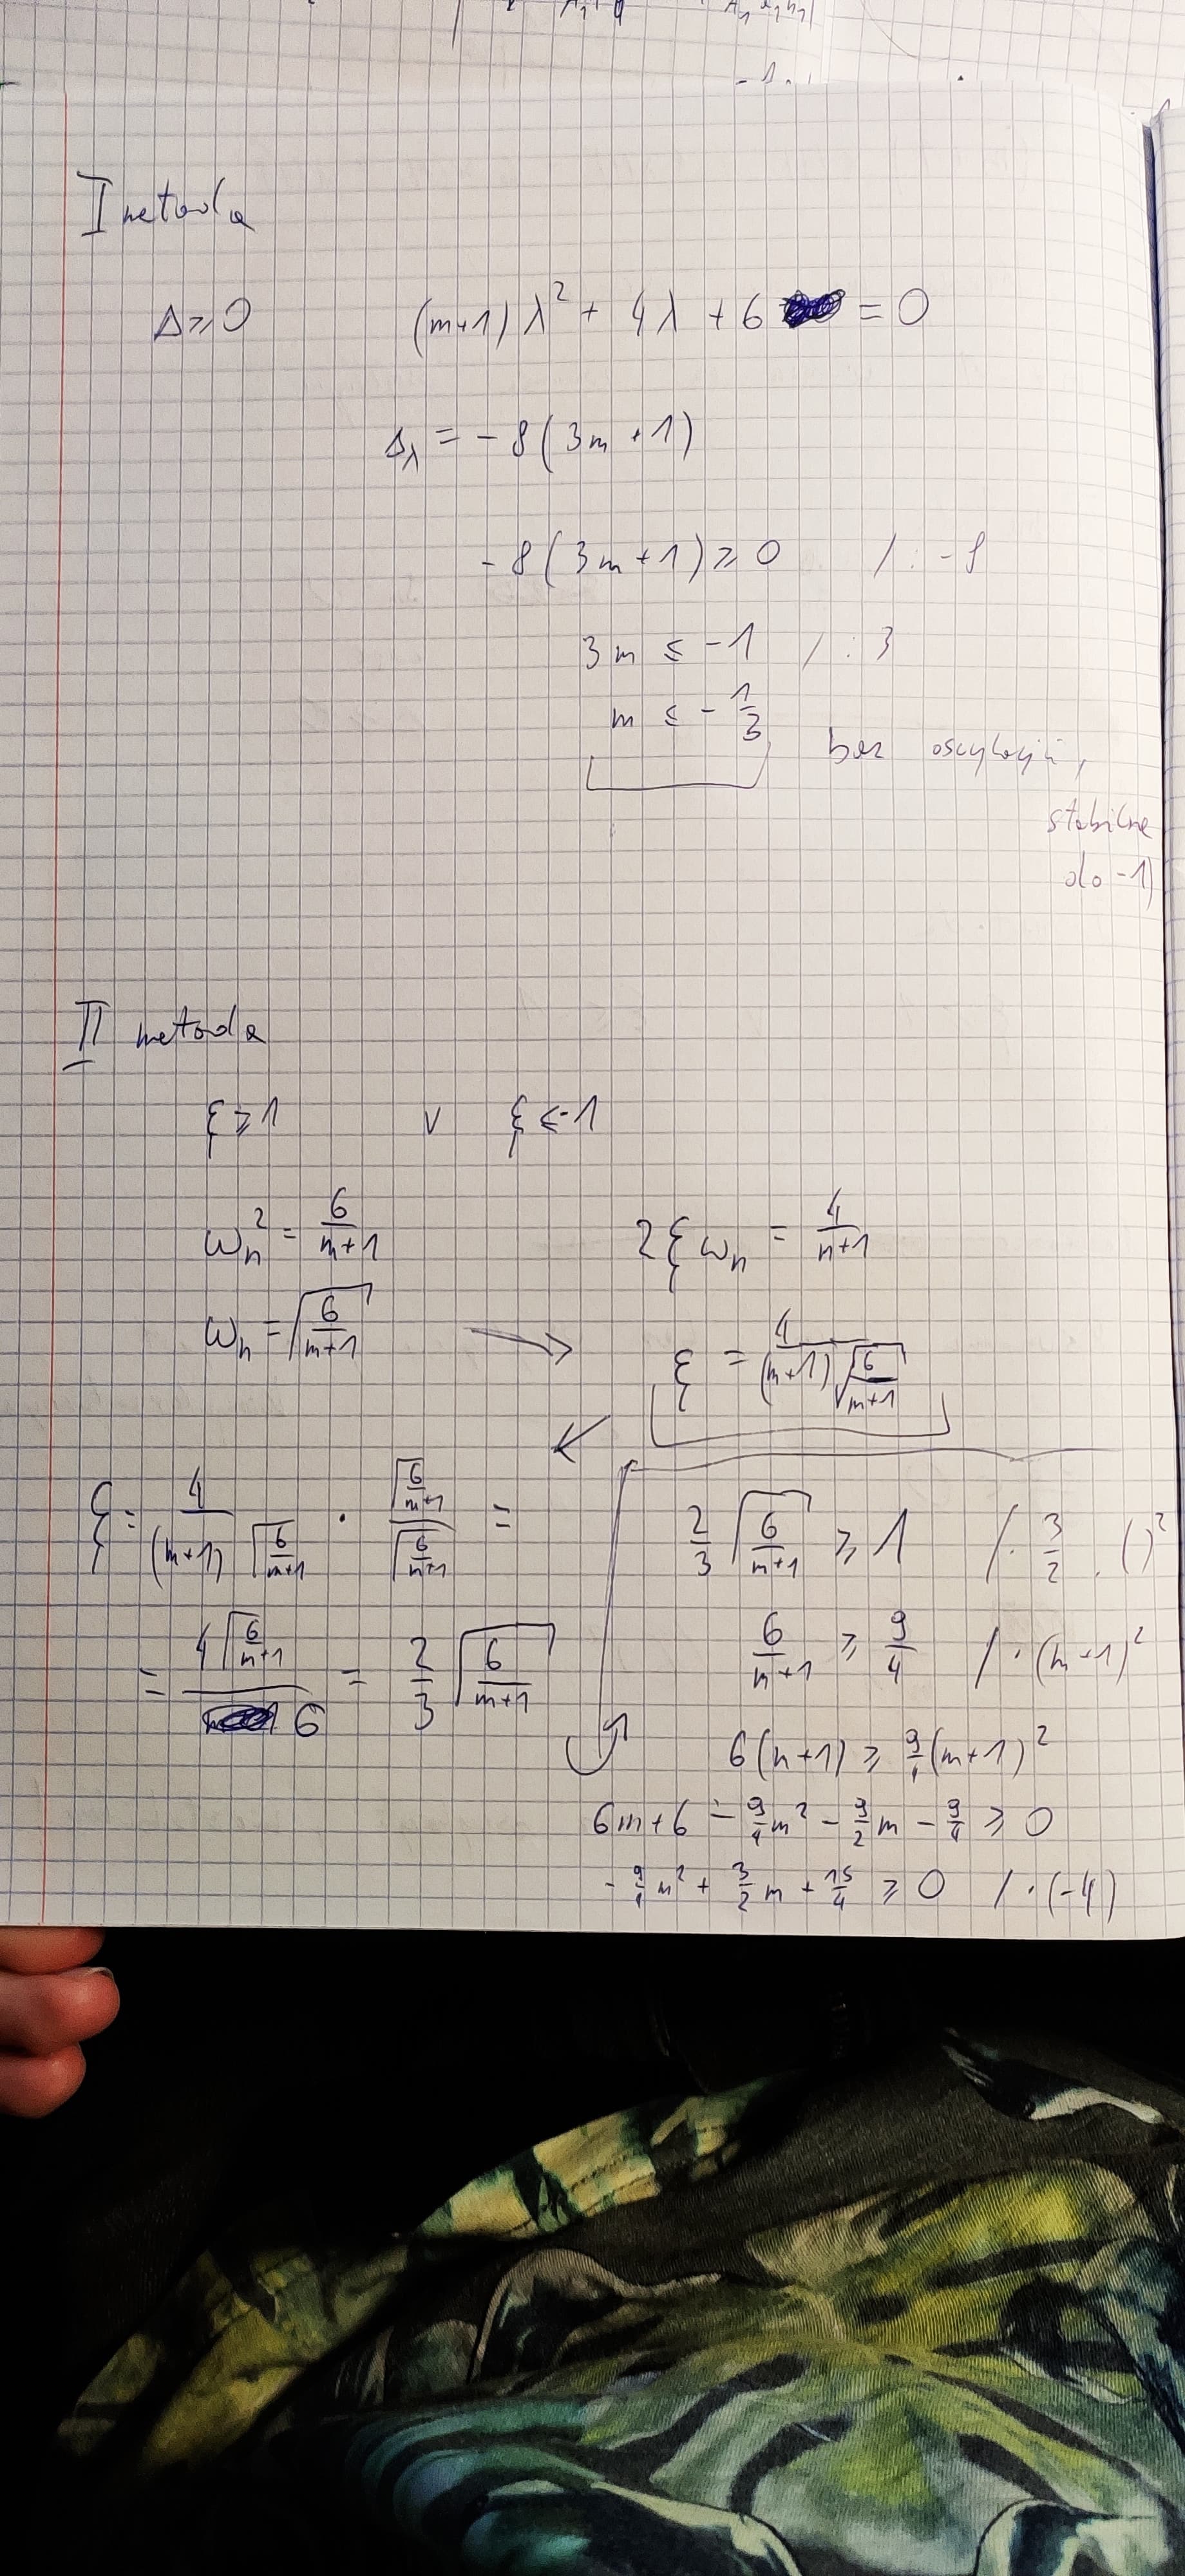 I metoda
Δ ≥ 0 (m+1)λ² + 4λ + 6 = 0
Δλ = -8(3m+1)
-8(3m+1) ≥ 0 / : -8
3m ≤ -1 / : 3
m ≤ -1/3
bez oscylacji,
stabilne
do -1)
II metoda
ξ ≥ 1 v ξ ≤ -1
ωn² = 6/(m+1) 2ξωn = 4/(m+1)
ωn = √(6/(m+1)) → ξ = 4/((m+1)√(6/(m+1)))
ξ = 4/((m+1)√(6/(m+1))) · √(6/(m+1))/√(6/(m+1)) =
= 4√(6/(m+1))/6 = 2/3 √(6/(m+1))
2/3 √(6/(m+1)) ≥ 1 / · 3/2 , ( )²
6/(m+1) ≥ 9/4 / · (m+1)²
6(m+1) ≥ 9/4(m+1)²
6m+6 - 9/4m² - 9/2m - 9/4 ≥ 0
- 9/4m² + 3/2m + 15/4 ≥ 0 / · (-4)